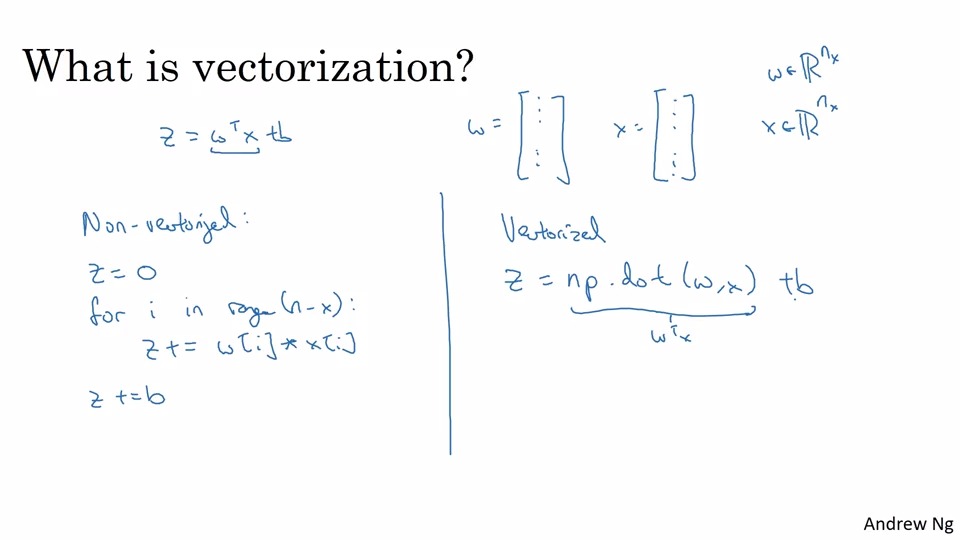 What is vectorization?
z = wᵀx + b
w = [⋮ ⋮]
x = [⋮ ⋮]
w ∈ ℝⁿˣ
x ∈ ℝⁿˣ
Non-vectorized:
z = 0
for i in range(n-x):
z += w[i] * x[i]
z += b
Vectorized
z = np.dot(w,x) + b
wᵀx
Andrew Ng